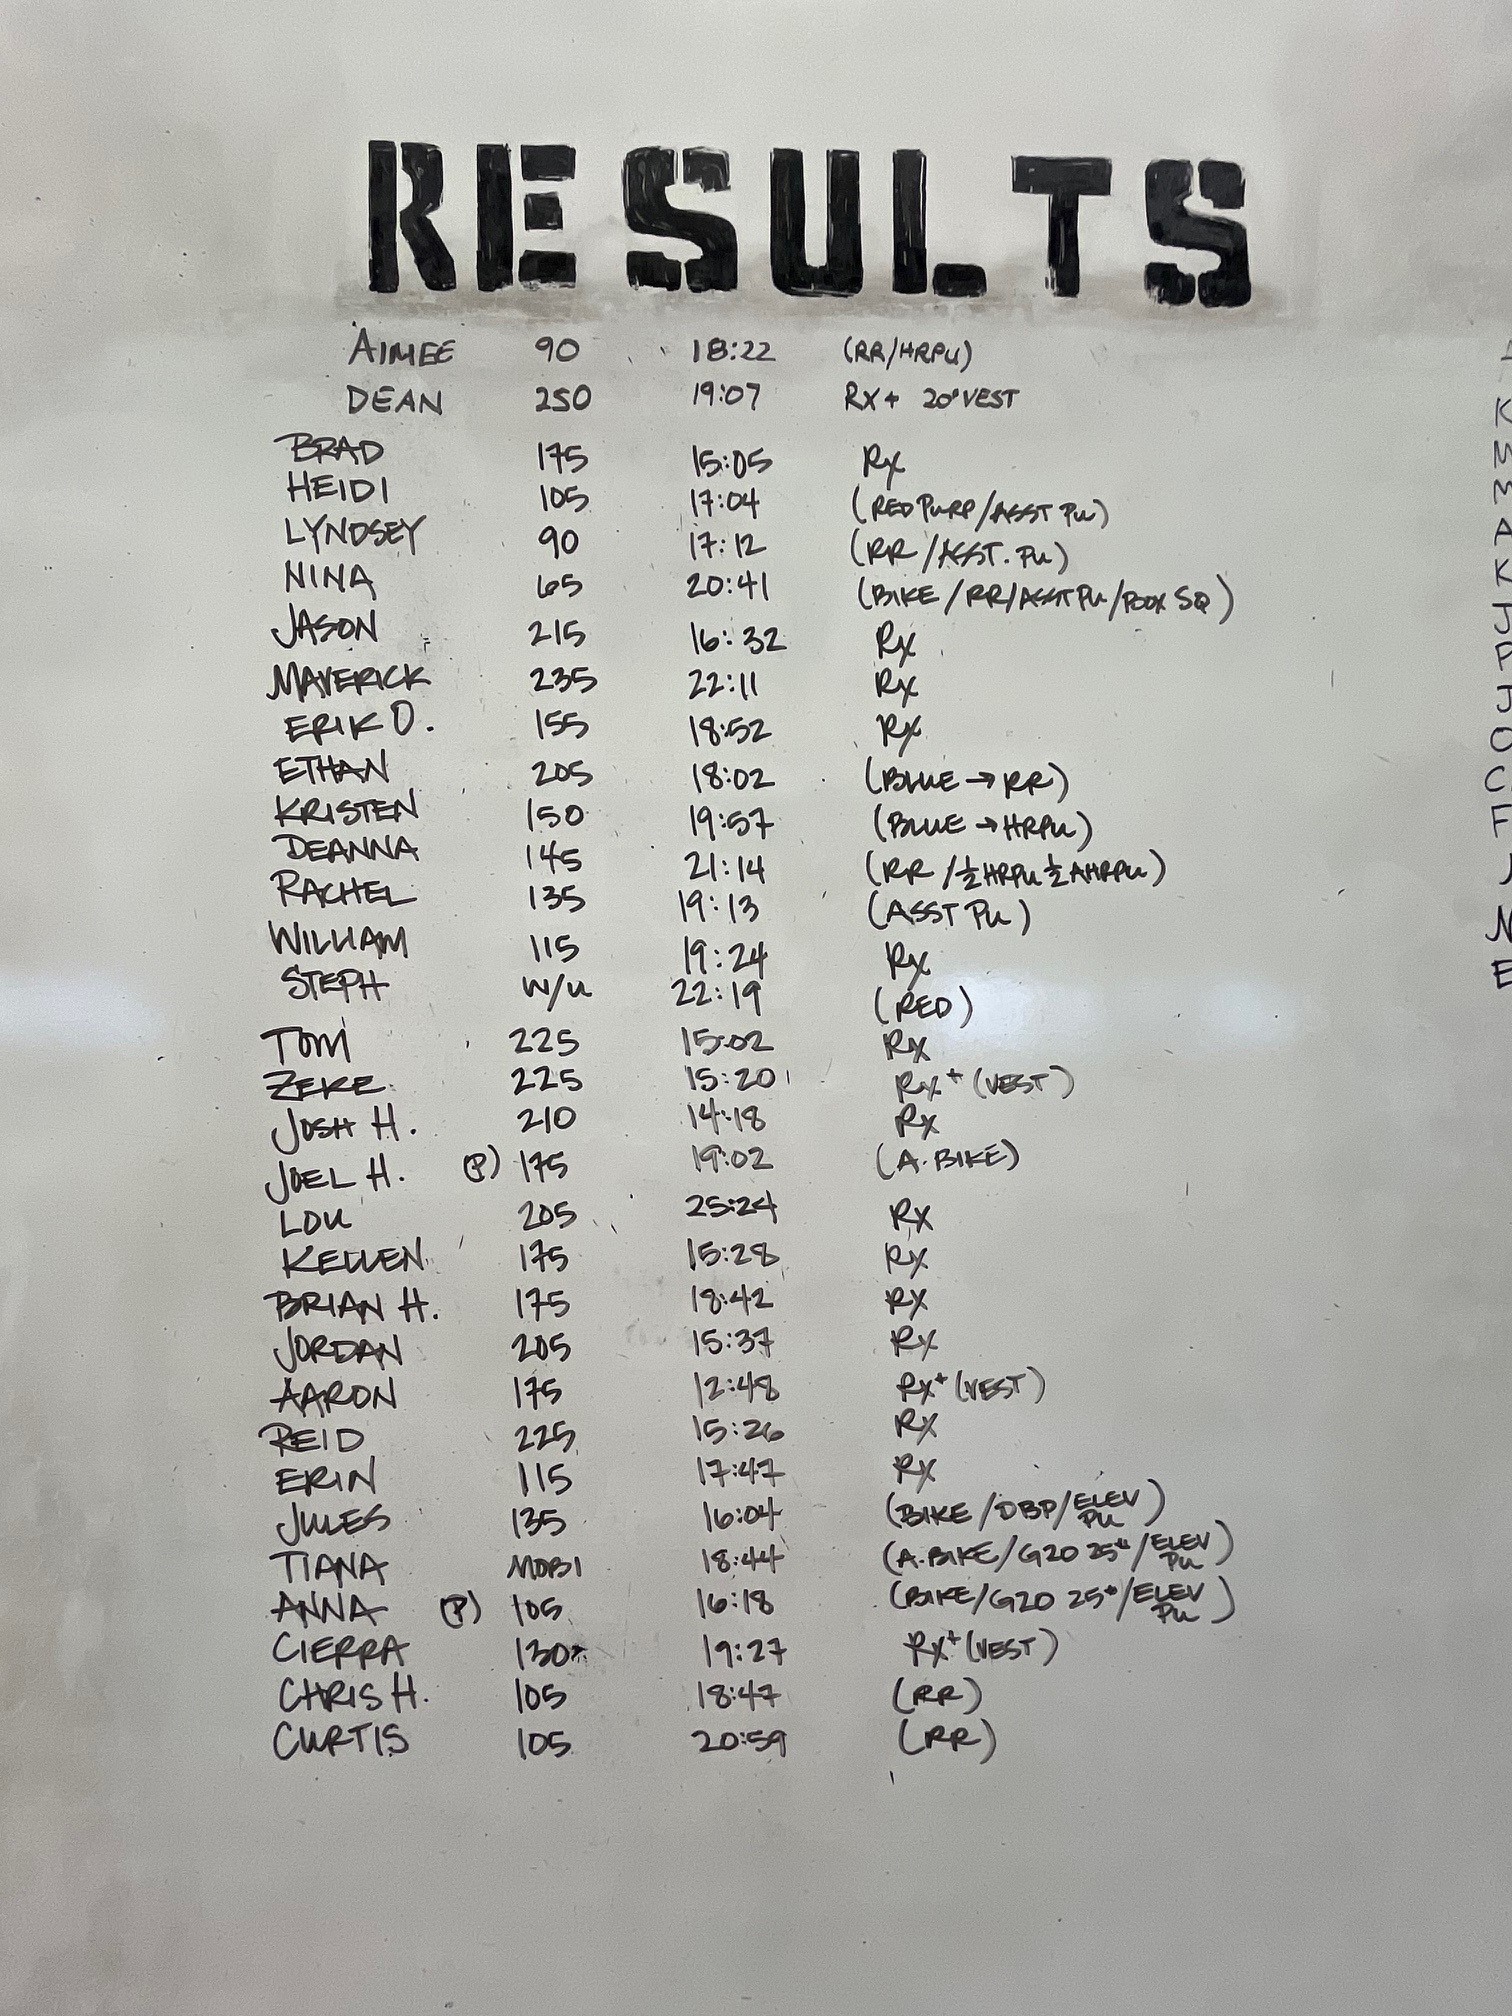 RESULTS
AIMEE 90 18:22 (RR/HRPU)
DEAN 250 19:07 RX+ 20# VEST
BRAD 175 15:05 RX
HEIDI 105 17:04 (RED PURP/ASST PU)
LYNDSEY 90 17:12 (RR/ASST. PU)
NINA 65 20:41 (BIKE/RR/ASST PU/BOX SQ)
JASON 215 16:32 RX
MAVERICK 235 22:11 RX
ERIK O. 155 18:52 RX
ETHAN 205 18:02 (BLUE → RR)
KRISTEN 150 19:57 (BLUE → HRPU)
DEANNA 145 21:14 (RR/½ HRPU ½ AHRPU)
RACHEL 135 19:13 (ASST PU)
WILLIAM 115 19:24 RX
STEPH W/U 22:19 (RED)
TOM 225 15:02 RX
ZEKE 225 15:20 RX+ (VEST)
JOSH H. 210 14:18 RX
JOEL H. (P) 175 19:02 (A.BIKE)
LOU 205 25:24 RX
KELLEN 175 15:28 RX
BRIAN H. 175 18:42 RX
JORDAN 205 15:37 RX
AARON 175 12:48 RX+ (VEST)
REID 225 15:26 RX
ERIN 115 17:47 RX
JULES 135 16:04 (BIKE/DBP/ELEV PU)
TIANA MOBI 18:44 (A.BIKE/G2O 25#/ELEV PU)
ANNA (P) 105 16:18 (BIKE/G2O 25#/ELEV PU)
CIERRA 130* 19:27 RX+ (VEST)
CHRIS H. 105 18:47 (RR)
CURTIS 105 20:59 (RR)